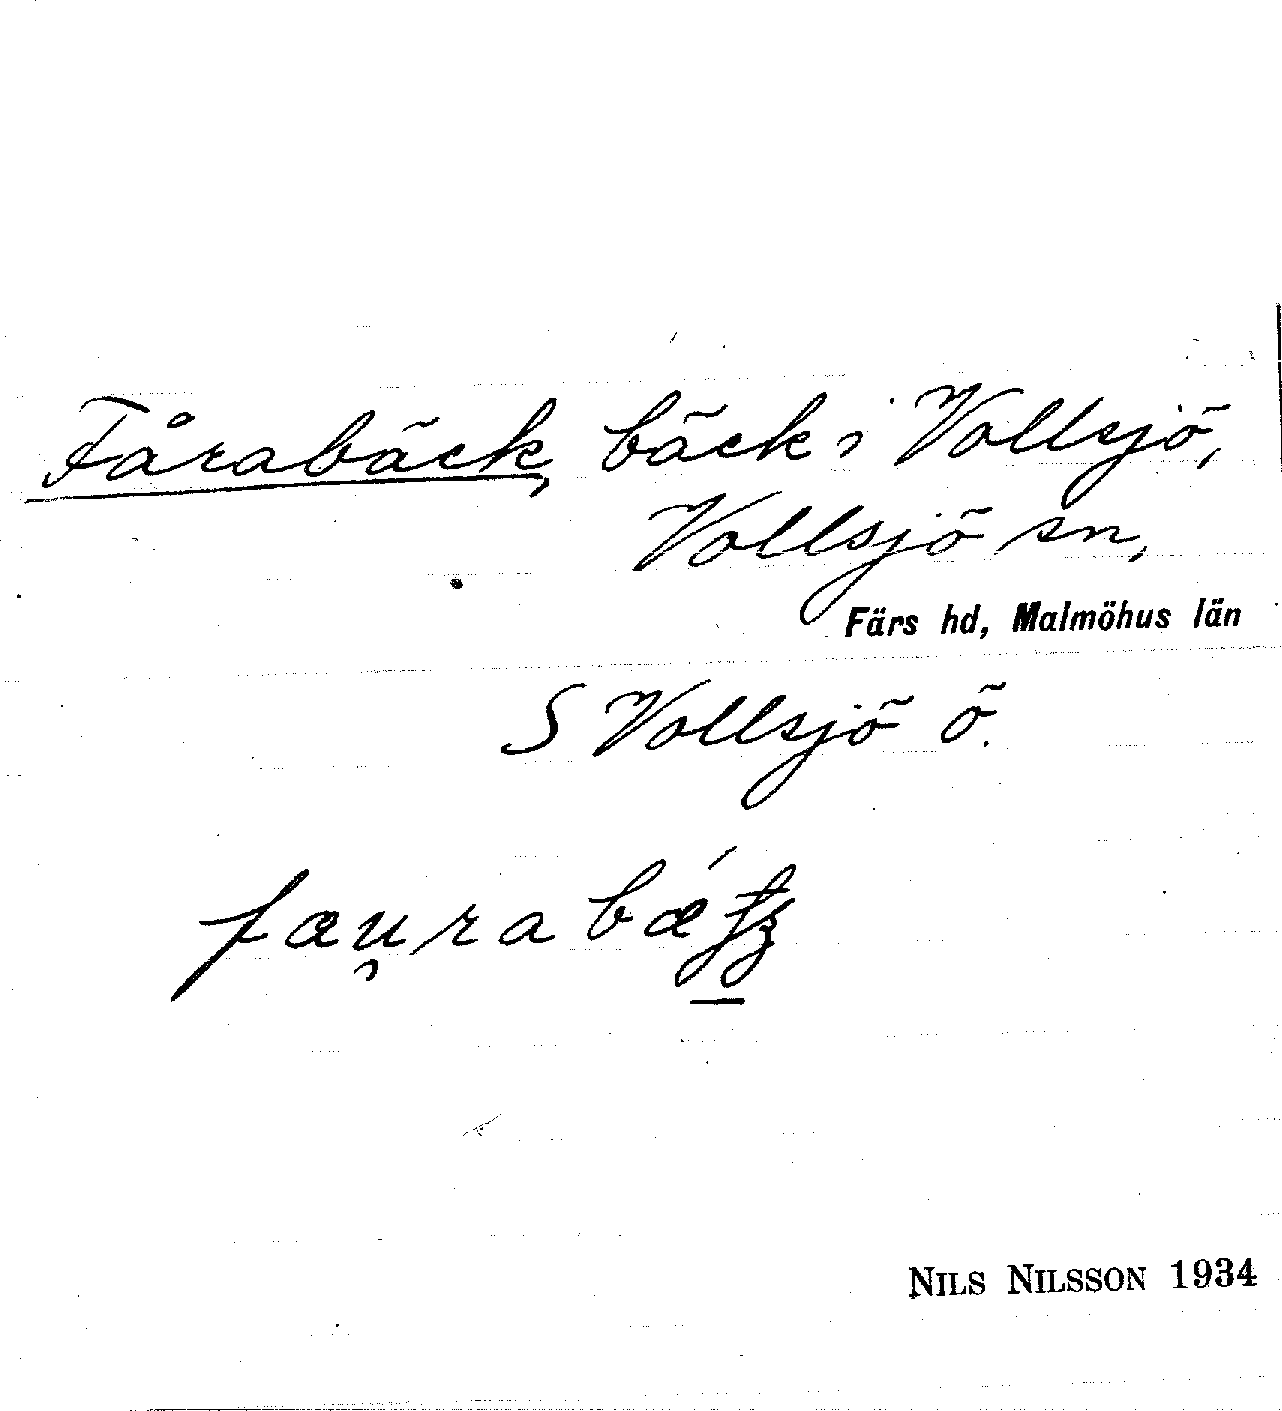 Fårabäck, bäck i Vollsjö,
Vollsjö sn,
Färs hd, Malmöhus län
S Vollsjö ö.
NILS NILSSON 1934